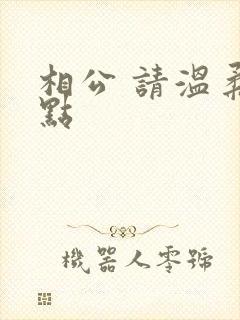 相公 請溫柔
點
機器人零號